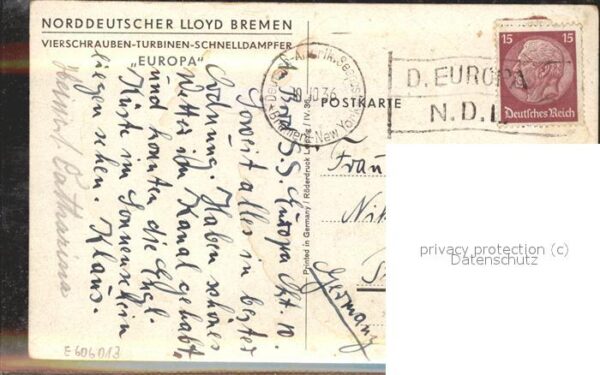 NORDDEUTSCHER LLOYD BREMEN
VIERSCHRAUBEN-TURBINEN-SCHNELLDAMPFER
„EUROPA"
An Bord S.S. Europa Okt. 10.
Soweit alles in bester
Ordnung. Haben schönes
Wetter im Kanal gehabt,
und konnten die Engl.
Küste im Sonnenschein
liegen sehen. Klaus.
Catharina
E606013
Printed in Germany / Röderdruck Leipzig / IV. 36
10.10.36
Bremen-New York
POSTKARTE
D. EUROPA
N.D.L.
15 15
Deutsches Reich
Frau
Germany
privacy protection (c)
Datenschutz